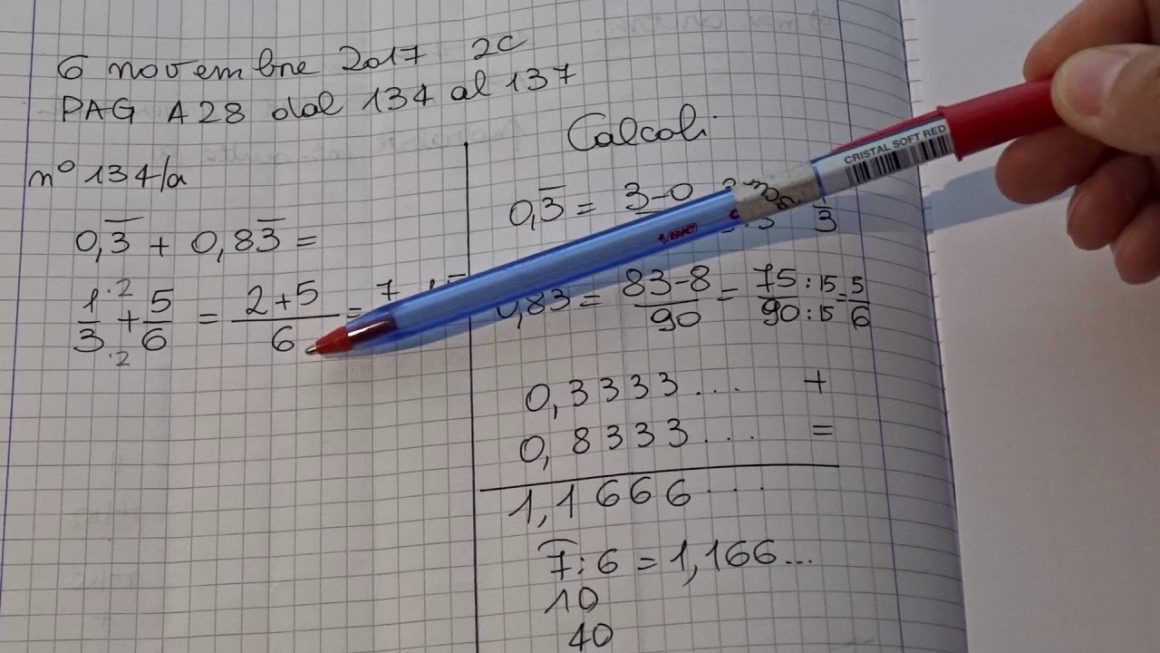 6 novembre 2017 2C
PAG A28 dal 134 al 137
n° 134/a
0,3̅ + 0,83̅ =
1/3 ·2/·2 + 5/6 = (2+5)/6 = 7
Calcoli
0,3̅ = 3-0 3
0,83 = (83-8)/90 = 75:15/90:15 = 5/6
0,3333... +
0,8333... =
1,1666...
7:6 = 1,166...
10
40
CRISTAL SOFT RED
BIC